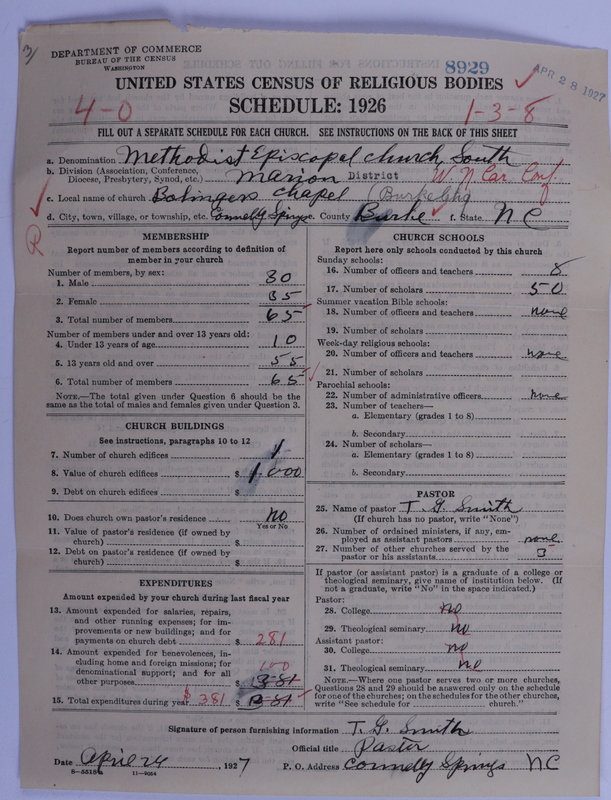 3/
DEPARTMENT OF COMMERCE
BUREAU OF THE CENSUS
WASHINGTON
8929
APR 28 1927
UNITED STATES CENSUS OF RELIGIOUS BODIES
4-0
SCHEDULE: 1926
1-3-8
FILL OUT A SEPARATE SCHEDULE FOR EACH CHURCH. SEE INSTRUCTIONS ON THE BACK OF THIS SHEET
a. Denomination Methodist Episcopal church, South
b. Division (Association, Conference, Diocese, Presbytery, Synod, etc.) Marion District W N Car. Conf.
c. Local name of church Bolingers chapel (Burke Chg
d. City, town, village, or township, etc. Connelly Springs e. County Burke f. State NC
R
MEMBERSHIP
Report number of members according to definition of
member in your church
Number of members, by sex:
1. Male 30
2. Female 35
3. Total number of members 65
Number of members under and over 13 years old:
4. Under 13 years of age 10
5. 13 years old and over 55
6. Total number of members 65
NOTE.—The total given under Question 6 should be
same as the total of males and females given under Question 3.
CHURCH BUILDINGS
See instructions, paragraphs 10 to 12
7. Number of church edifices 1
8. Value of church edifices $ 1,000
9. Debt on church edifices $
10. Does church own pastor's residence No
Yes or No
11. Value of pastor's residence (if owned by
church) $
12. Debt on pastor's residence (if owned by
church) $
EXPENDITURES
Amount expended by your church during last fiscal year
13. Amount expended for salaries, repairs,
and other running expenses; for im-
provements or new buildings; and for
payments on church debt $ 281
14. Amount expended for benevolences, in-
cluding home and foreign missions; for
denominational support; and for all 100
other purposes $ 381
15. Total expenditures during year $ 381 $ 381
CHURCH SCHOOLS
Report here only schools conducted by this church
Sunday schools:
16. Number of officers and teachers 8
17. Number of scholars 50
Summer vacation Bible schools:
18. Number of officers and teachers none
19. Number of scholars
Week-day religious schools:
20. Number of officers and teachers none
21. Number of scholars
Parochial schools:
22. Number of administrative officers none
23. Number of teachers—
a. Elementary (grades 1 to 8)
b. Secondary
24. Number of scholars—
a. Elementary (grades 1 to 8)
b. Secondary
PASTOR
25. Name of pastor T. G. Smith
(If church has no pastor, write "None")
26. Number of ordained ministers, if any, em-
ployed as assistant pastors none
27. Number of other churches served by the
pastor or his assistants 3
If pastor (or assistant pastor) is a graduate of a college or
theological seminary, give name of institution below. (If
not a graduate, write "No" in the space indicated.)
Pastor:
28. College no
29. Theological seminary no
Assistant pastor:
30. College no
31. Theological seminary no
NOTE.—Where one pastor serves two or more churches,
Questions 28 and 29 should be answered only on the schedule
for one of the churches; on the schedules for the other churches,
write "See schedule for church."
Signature of person furnishing information T. G. Smith
Official title Pastor
Date April 24, 1927 P. O. Address Connelly Springs NC
8-5518a 11-9064